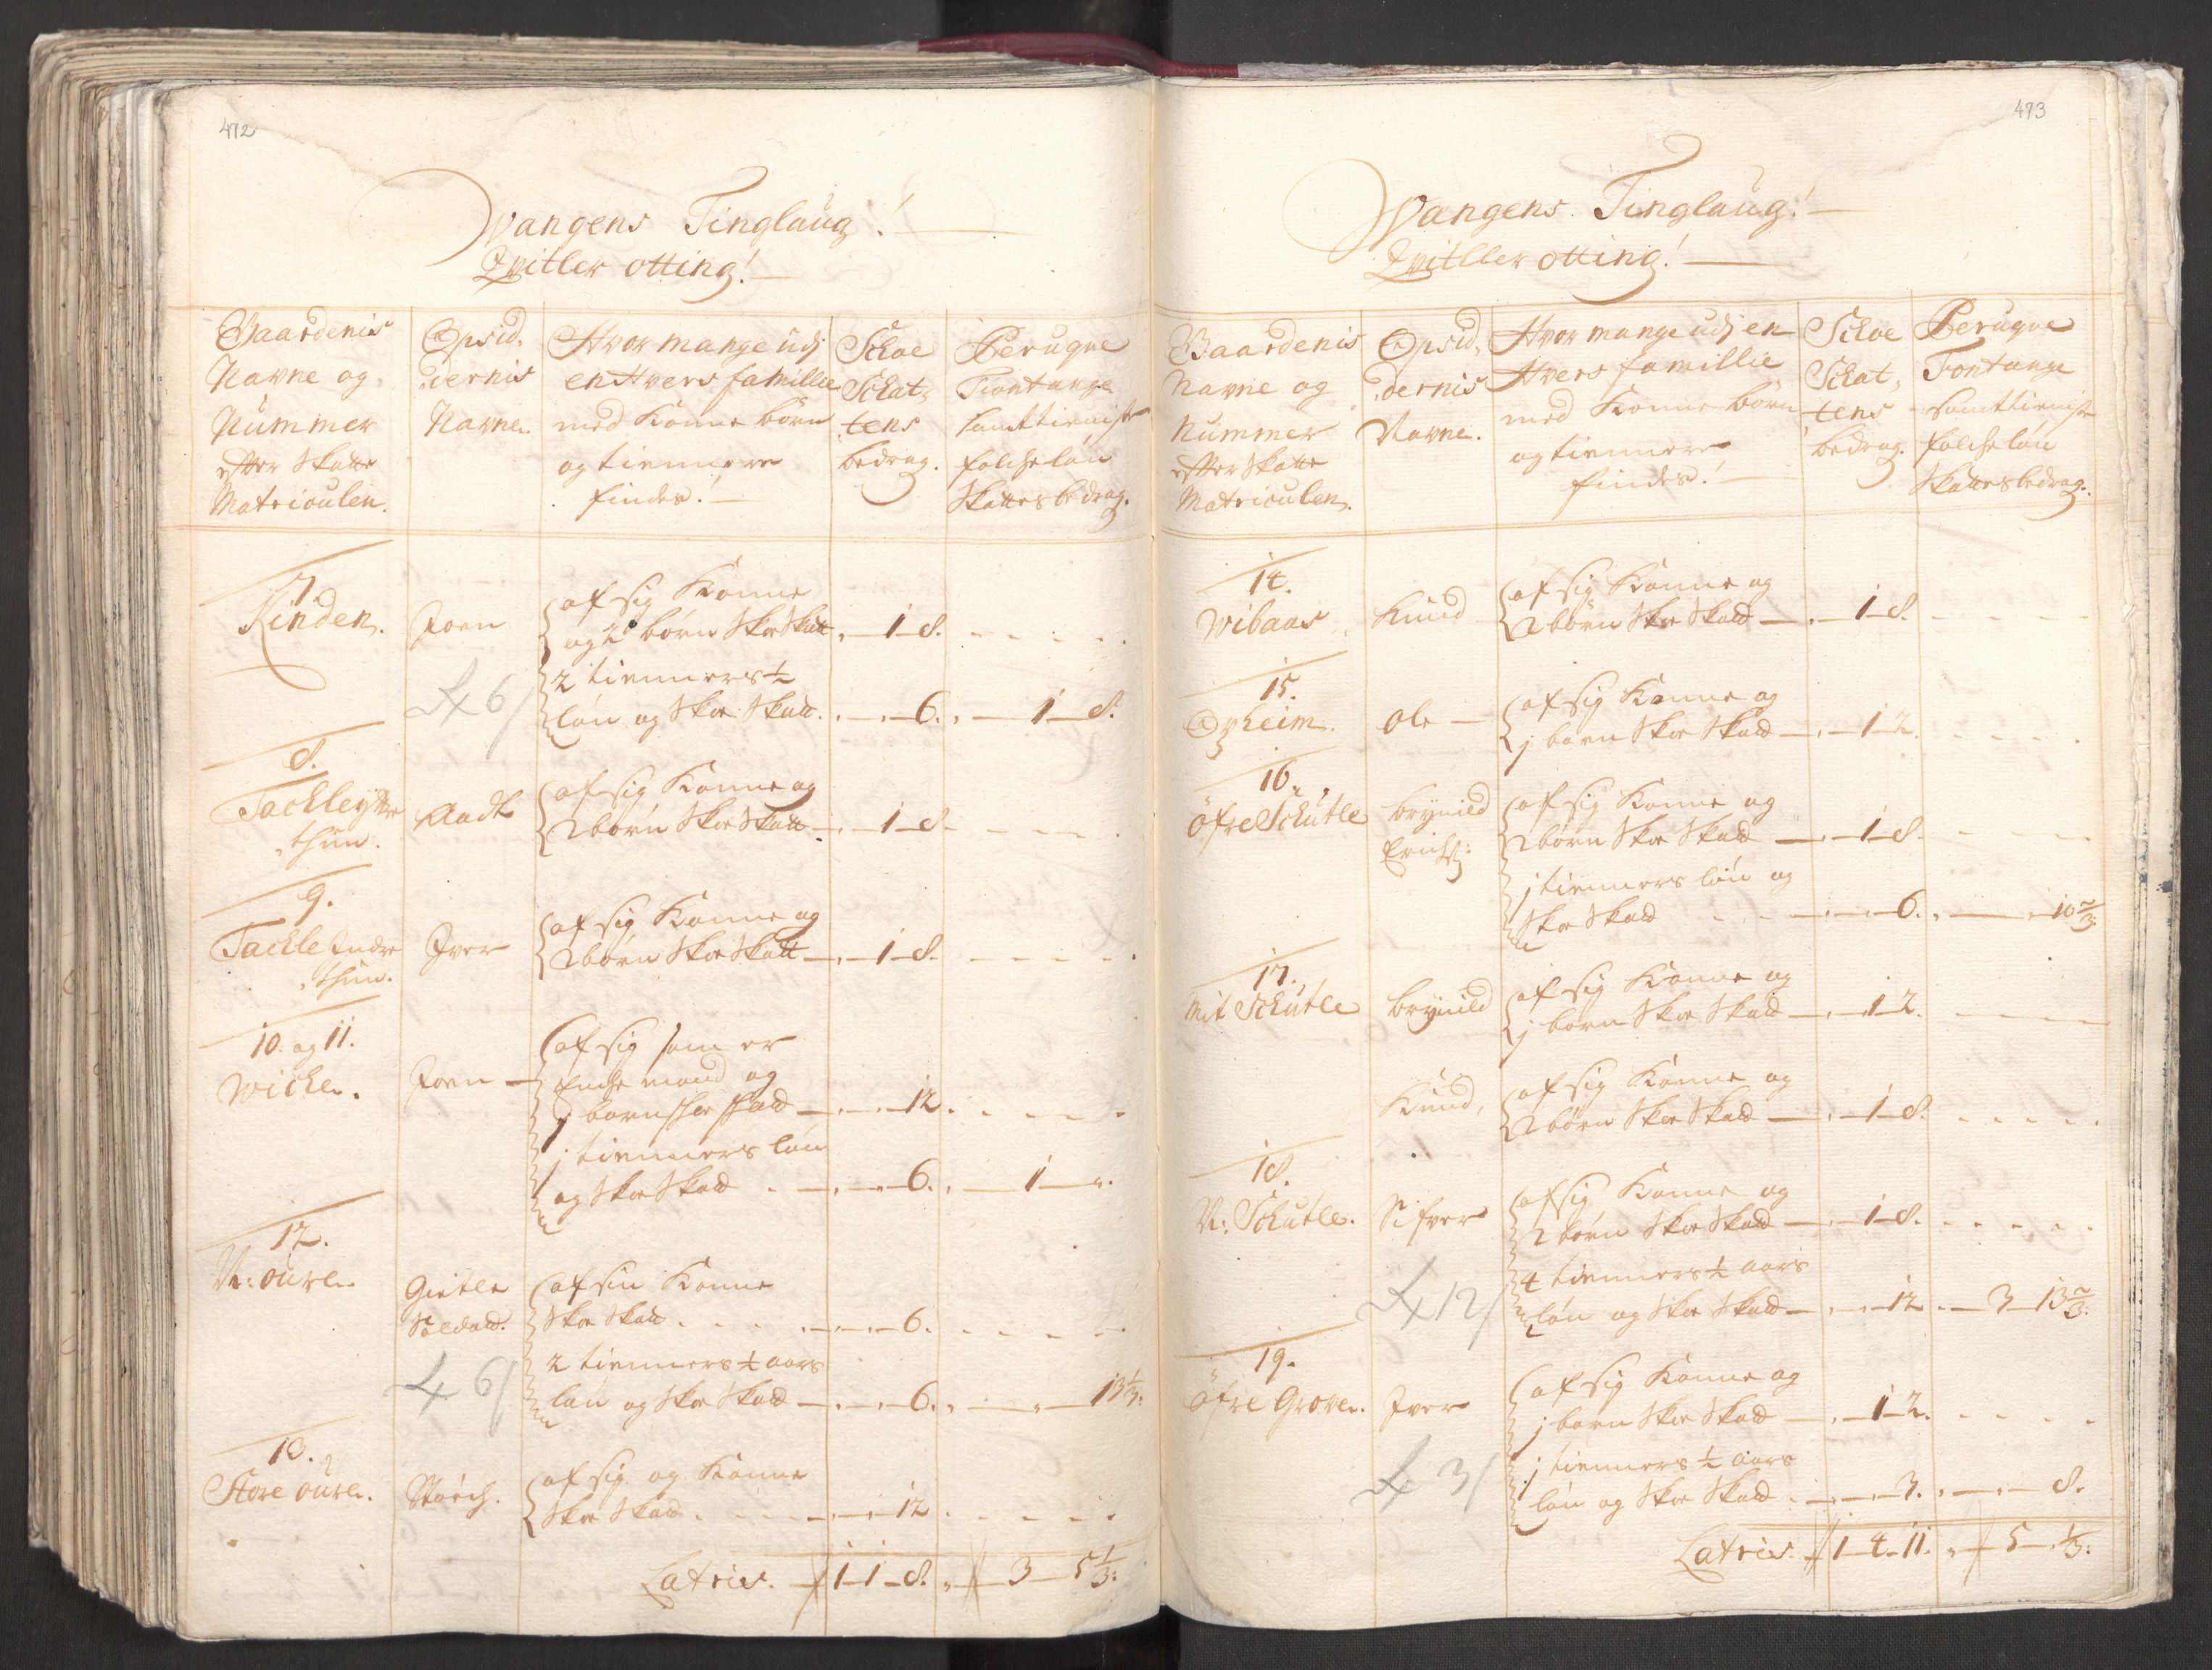 472
Wangens Tinglaug!
Qvitler otting!
Gaardenis
Navne og
Nummer
effter Skatte
Matrioulen.
Opsid,
dernis
Navne.
Hvor mange udj
en Hvers famillie
med Konne børn
og tiennere
findes!
Schoe
Schat,
tens
bedrag.
Peruque
Fontange
samt tieniste
folchs løn
Skattes bedrag.
7.
Kinden.
Joen
af sig Konne
og 2 børn Skoe Skatt
1 8.
2 tienners ½
løn og Skoe Skatt.
6. 1 8.
L 6/
8.
Tackle yttre
thun.
Aadt
af sig Konne og
2 børn Skoe Skatt
1 8
9.
Tackle Indre
thun.
Iver
af sig Konne og
2 børn Skoe Skatt
1 8.
10. og 11.
Wicke.
Joen
af sig som er
Enche mand og
j børn schoe schatt
12.
j tienners løn
og Skoe Skatt
6. 1
12.
N: oure.
Gietle
Soldatt.
af sin Konne
Skoe Skatt
6.
2 tienners ½ aars
løn og Skoe Skatt
6. 13⅓:
L 6/
13.
Store oure.
af sig og Konne
Skoe Skatt
12
Latris. 1 1 8. 3 5⅓:
473
Wangens Tinglaug!
Qvitller otting!
Gaardenis
Navne og
Nummer
effter Skatte
Matrioulen.
Opsid,
dernis
Navne.
Hvor mange udj en
Hvers famillie
med Konne børn
og tiennere
findes!
Schoe
Schat,
tens
bedrag.
Peruque
Fontange
samt tieniste
folchs løn
Skattes bedrag.
14.
Wibaas
Knud
af sig Konne og
2 børn Skoe Skatt
1 8.
15.
Opheim.
Ole
af sig Konne og
j børn Skoe Skatt
1 2.
16.
Öfre Schutle
brynild
Erichs:
af sig Konne og
2 børn Skoe Skatt
1 8.
j tienners løn og
Skoe Skatt
6. 10⅔
17.
Mit Schutle
brynild
af sig Konne og
j børn Skoe Skatt
1 2.
Knud,
af sig Konne og
2 børn Skoe Skatt
1 8.
18.
N: Schutle.
Sifver
af sig Konne og
2 børn Skoe Skatt
1 8.
4 tienners ½ aars
løn og Skoe Skatt
12. 3 13⅔:
L 12/
19.
Öfre Grove.
Iver
af sig Konne og
j børn Skoe Skatt
1 2.
j tienners ½ aars
løn og Skoe Skatt
3. 8.
L 3/
Latris. 1 4 11. 5 ⅓: